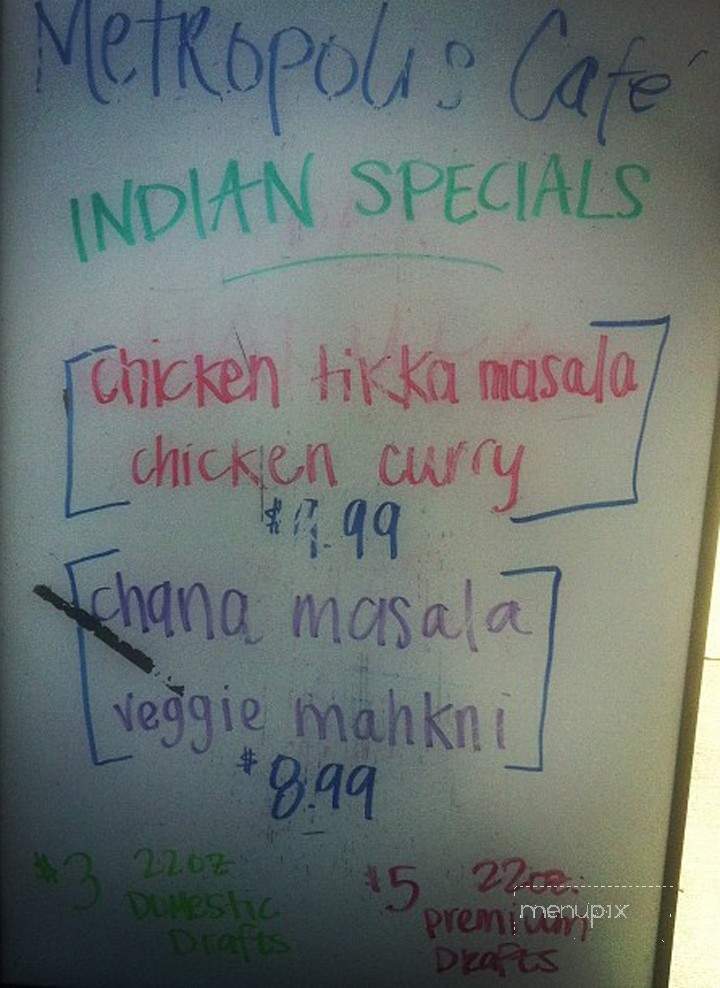 Metropolis Café
INDIAN SPECIALS
chicken tikka masala
chicken curry
chana masala
veggie mahkni
$8.99
$3 22oz
Domestic
Drafts
$5 22oz.
premium
Drafts
menupix